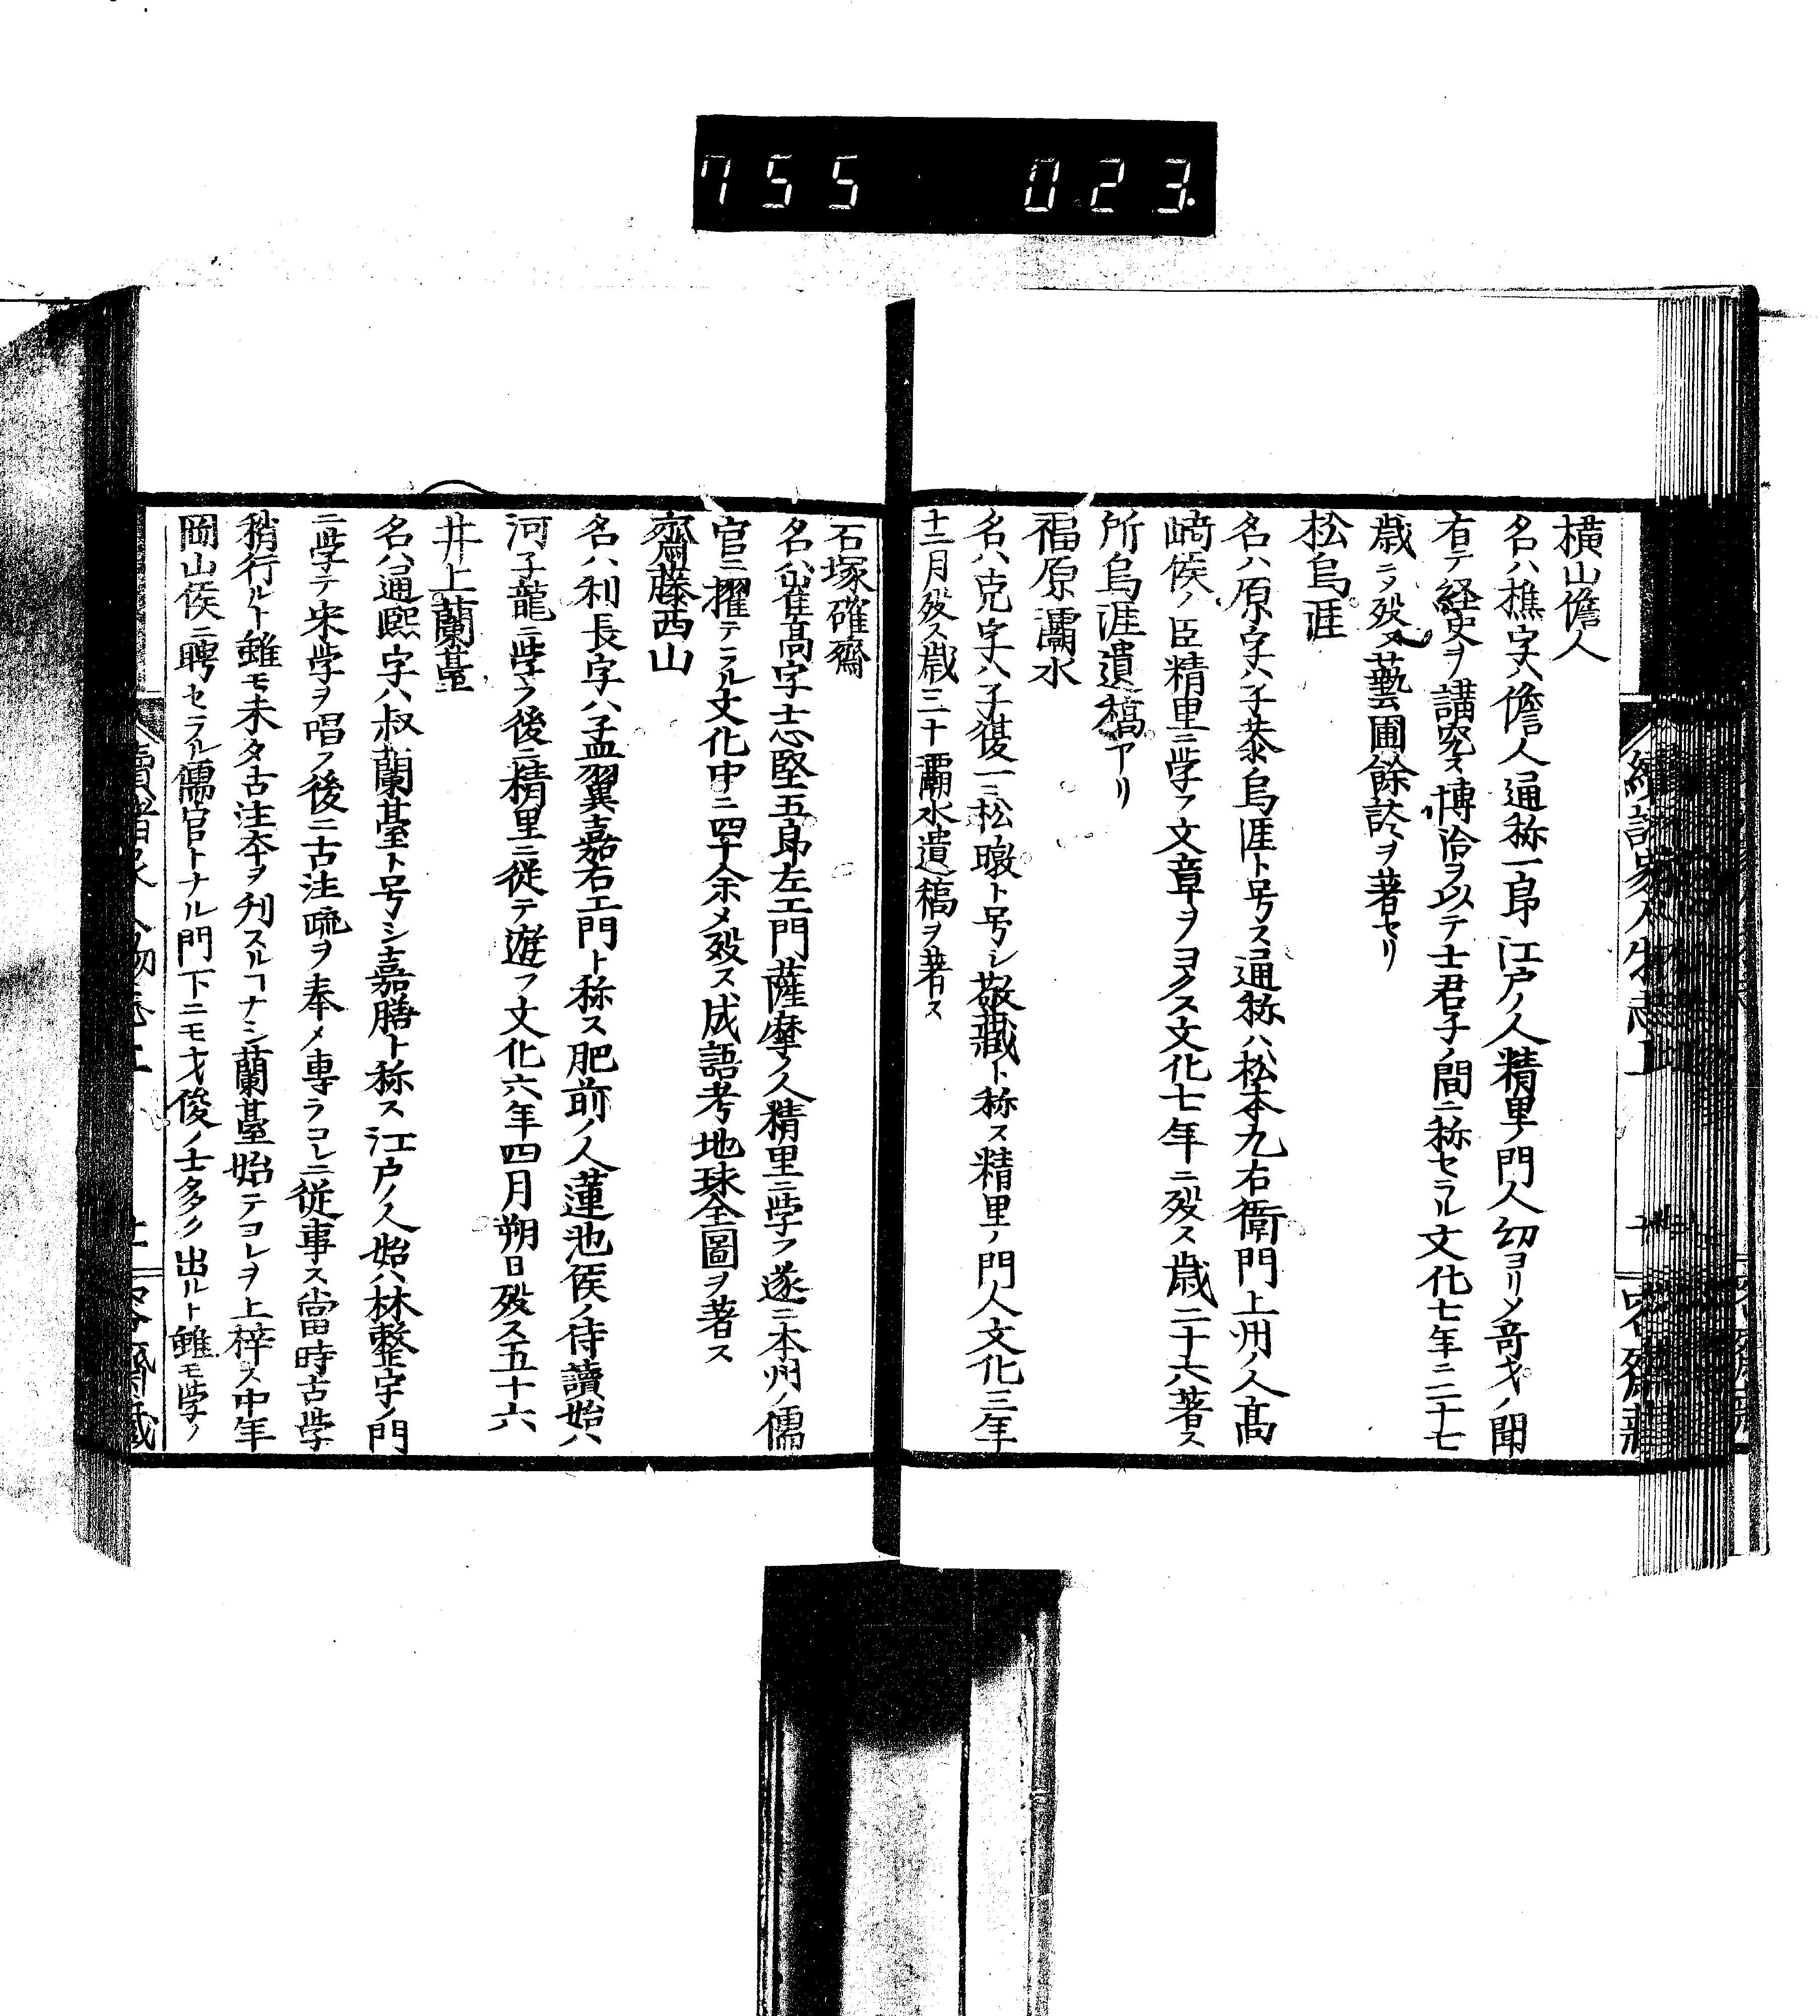 755 023.
横山儋人
名ハ樵字ハ儋人通称一郎江戸ノ人精里ノ門人幼ヨリメ奇才ノ聞
有テ経史ヲ講究ス博洽ヲ以テ士君子ノ間ニ称セラル文化七年二十七
歳ニメ歿ス藝圃餘談ヲ著セリ
松烏涯
名ハ原字ハ子恭烏涯ト号ス通称ハ松本九右衛門上州ノ人高
﨑侯ノ臣精里ニ学フ文章ヲヨクス文化七年ニ歿ス歳二十六著ス
所烏涯遺稿アリ
福原灞水
名ハ克字ハ子復一ニ松暾ト号シ敬藏ト称ス精里ノ門人文化三年
十二月歿ス歳三十灞水遺稿ヲ著ス
續諸家人物志上
石塚確齋
名ハ崔高字士志堅五郎左エ門薩摩ノ人精里ニ学フ遂ニ本州ノ儒
官ニ擢テラル文化中ニ四十余メ歿ス成語考地球全圖ヲ著ス
齋藤西山
名ハ利長字ハ孟翼嘉右エ門ト称ス肥前ノ人蓮池侯ノ侍讀始ハ
河子龍ニ学フ後ニ精里ニ従テ遊フ文化六年四月朔日歿ス五十六
井上蘭臺
名ハ通熙字ハ叔蘭臺ト号シ嘉膳ト称ス江戸ノ人始ハ林整宇ノ門
ニ学テ宋学ヲ唱フ後ニ古注疏ヲ奉メ専ラコレニ従事ス當時古学
稍行ルト雖モ未タ古注本ヲ刊スルコナシ蘭臺始テコレヲ上梓ス中年
岡山侯ニ聘セラル儒官トナル門下ニモ才俊ノ士多ク出ルト雖モ学ノ